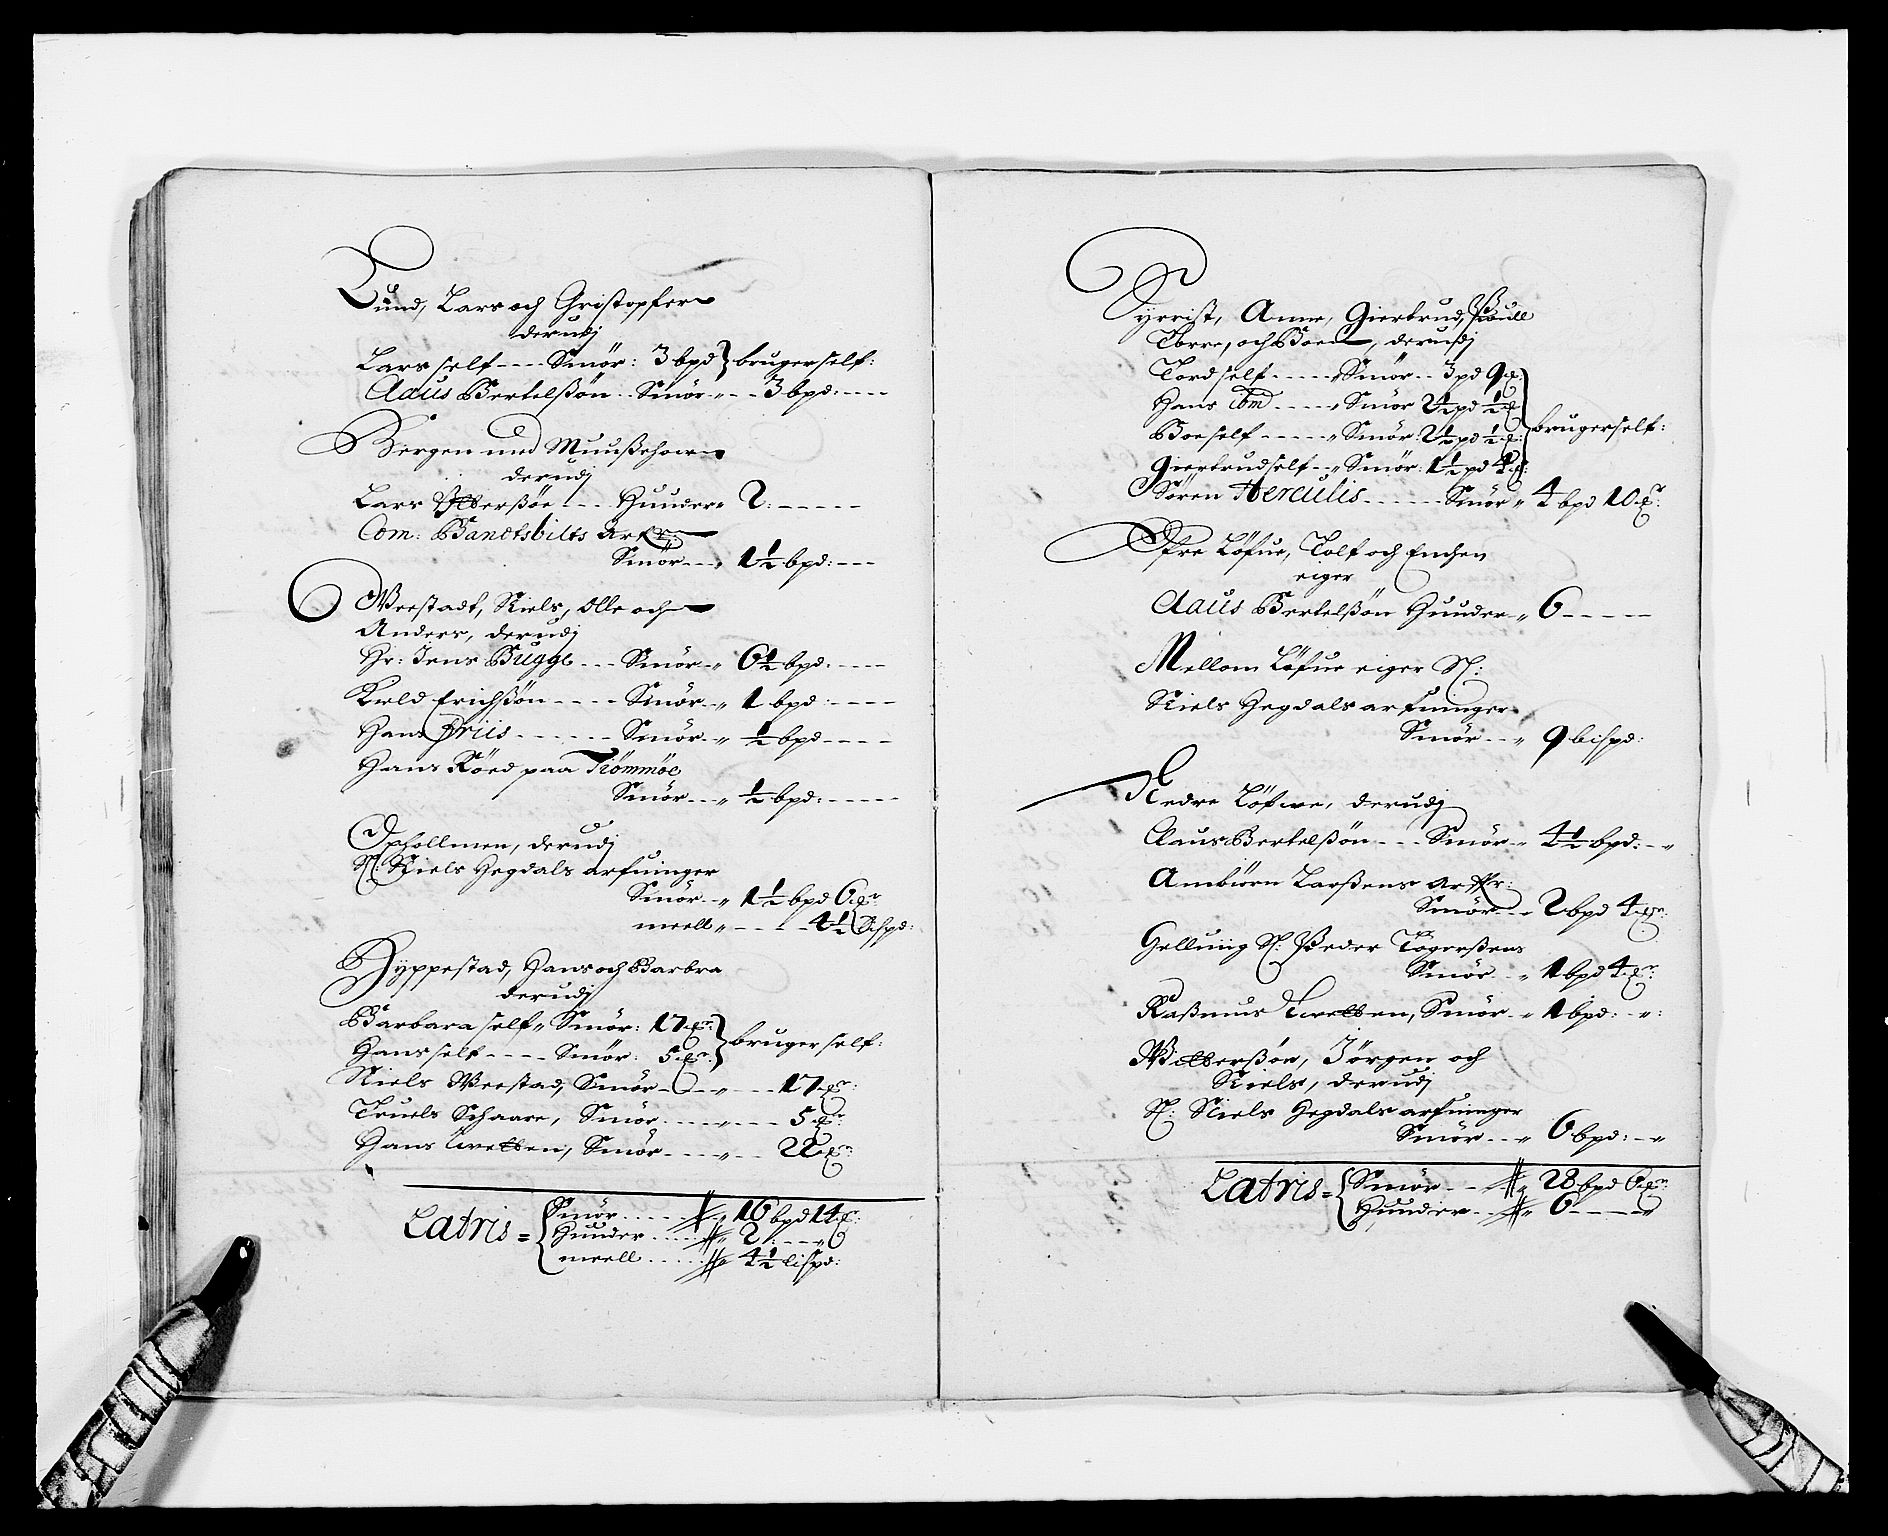 Lund, Lars och Christopfer
derudj
Lars self ---- Smör: 3 bpd } bruger self:
Claus Bertelßön .. Smör „ -- 3 bpd: ---
Bergen und Muußehoven
derudj
Lars --- Huuder „ 2: -----
Com: Banctsbilts arfr:
Smör --„ 1½ bpd: ---
Weestadt, Niels, Olle och
Anders, derudj
Hr: Jens Bugge --- Smör „ 6½ bpd: ----
Kield Erichßön ---- Smör „ 1 bpd: ----
Hans Friis ------ Smör „ ½ bpd ----
Hans Röed paa Trömmöe
Smör --„ ½ bpd: -----
derudj
Sl: Niels Hegdals arfuinger
Smör --„ 1½ bpd 6 ⅌r:
meell „ --- 4½ Lispd:
Hyppestad, Hans och Barbra
derudj
Barbara self „ Smör: 17 ⅌r: } bruger self:
Hans self ---- Smör: 5 ⅌r:
Niels Weestad, Smör -- „ --- 17 ⅌r:
Truels Schaare, Smör .... „ --- 5 ⅌r:
Hans Tvetten, Smör --- „ -- 22 ⅌r:
Latris = { Smör .... „ 16 bpd 14 ⅌r:
Huuder .... „ 2: ---
meell ..... „ 4½ lispd:
Tyrist, Anne, Giertrud, Poull
Torre, och Boed, derudj
Tord self ----- Smör -- 3 pd 9 ⅌:
Hans ibm ---- „ Smör 2½ pd ½ ⅌
Boe self ----- „ Smör: 2½ pd ½ ⅌: } bruger self:
Giertrud self -- „ Smör: 1½ pd 4 ⅌:
Sören Herculis ------ Smör „ 4 bpd 10 ⅌r:
Öfre Löfue, Tolf och Enchen
eiger
Claus Bertelßön Huuder „ 6 -----
Mellom Löfue eiger Sl:
Niels Hegdals arfuinger
Smör --„ 9 bispd:
Nedre Löfwe, derudj
Claus Bertelßön --- Smör „ 4½ bpd: -„
Ambiörn Larßens arffr:
Smör -- „ 2 bpd 4 ⅌r:
Gelluiig Sl: Peder Tögerßens
Smör -- „ 1 bpd 4 ⅌r:
Raßmus Tvetten, Smör -„ 1 bpd: -„:
Jörgen och
Niels, derudj
Sl: Niels Hegdals arfuinger
Smör --„ 6 bpd: -„
Latris = { Smör -- „ 28 bpd 6 ⅌r:
Huuder -- „ 6 ----„